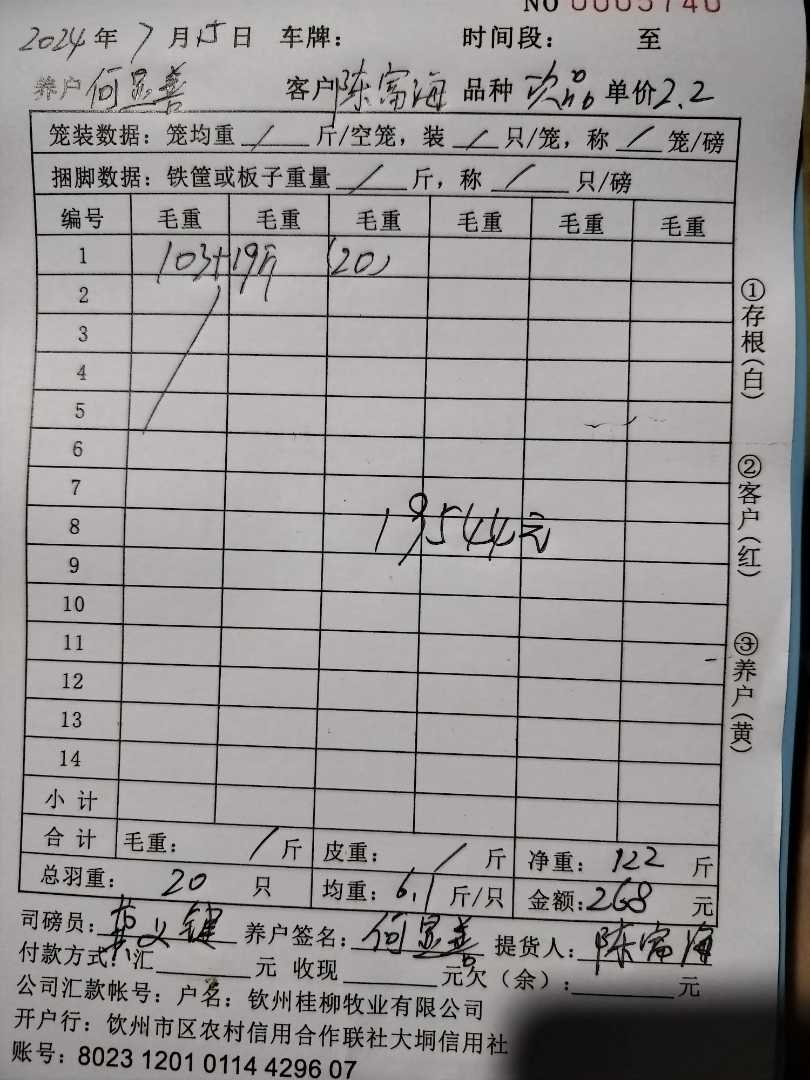 NO 0005740
2024年7月15日 车牌: 时间段: 至
养户何显善 客户陈富海 品种 次品 单价2.2
笼装数据: 笼均重 / 斤/空笼, 装 / 只/笼, 称 / 笼/磅
捆脚数据: 铁筐或板子重量 / 斤, 称 / 只/磅
编号 毛重 毛重 毛重 毛重 毛重 毛重
1 103+19斤 (20)
2
3
4
5
6
7
8 19544元
9
10
11
12
13
14
小计
合计 毛重: / 斤 皮重: / 斤 净重: 122 斤
总羽重: 20 只 均重: 6.1 斤/只 金额: 268 元
司磅员: 义键 养户签名: 何显善 提货人: 陈富海
付款方式: 汇 元 收现 元欠(余): 元
公司汇款帐号: 户名: 钦州桂柳牧业有限公司
开户行: 钦州市区农村信用合作联社大垌信用社
账号: 8023 1201 0114 4296 07
①存根(白)
②客户(红)
③养户(黄)